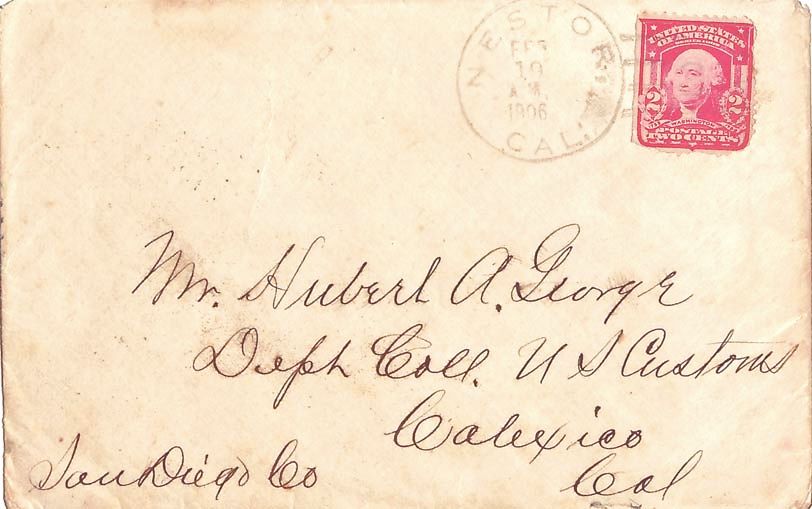 NESTOR
FEB
10
A.M.
1906
CAL.
UNITED STATES
OF AMERICA
2 2
WASHINGTON
POSTAGE
TWO CENTS
Mr. Hubert A. George
Deph Coll. U S Customs
Calexico
San Diego Co Cal